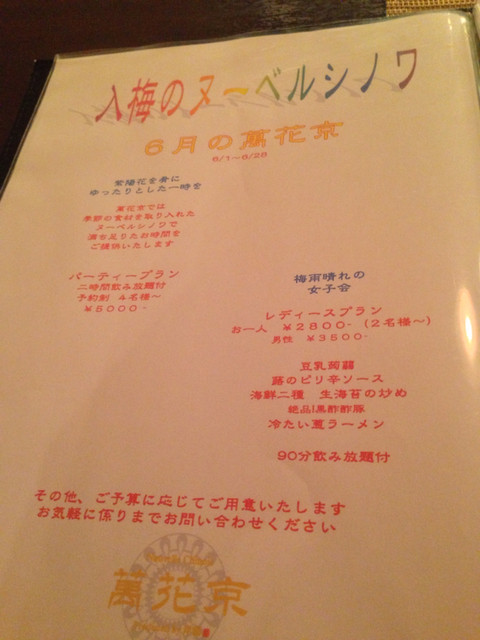 入梅のヌーベルシノワ
6月の萬花京
6/1～6/28
紫陽花を肴に
ゆったりとした一時を
萬花京では
季節の食材を取り入れた
ヌーベルシノワで
満ち足りたお時間を
ご提供いたします
パーティープラン
二時間飲み放題付
予約制 4名様～
￥5000-
梅雨晴れの
女子会
レディースプラン
お一人 ￥2800-（2名様～）
男性 ￥3500-
豆乳蒟蒻
蕗のピリ辛ソース
海鮮二種 生海苔の炒め
絶品!黒酢酢豚
冷たい葱ラーメン
90分飲み放題付
その他、ご予算に応じてご用意いたします
お気軽に係りまでお問い合わせください
萬花京